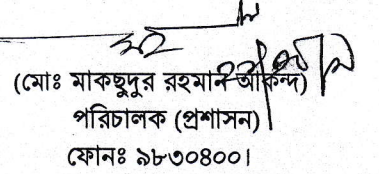 (মোঃ মাকছুদুর রহমান আকন্দ)
পরিচালক (প্রশাসন)
ফোনঃ ৯৮৩০৪০০।